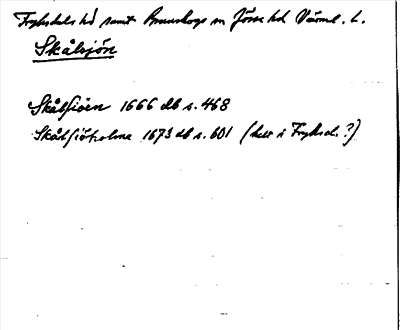 Fryksdals hd samt Brunskogs sn Jösse hd Värml. L.
Skålsjön
Skålsiöen 1666 db s. 468
Skålsiöholma 1673 db s. 601 (här i Fryksd.?)